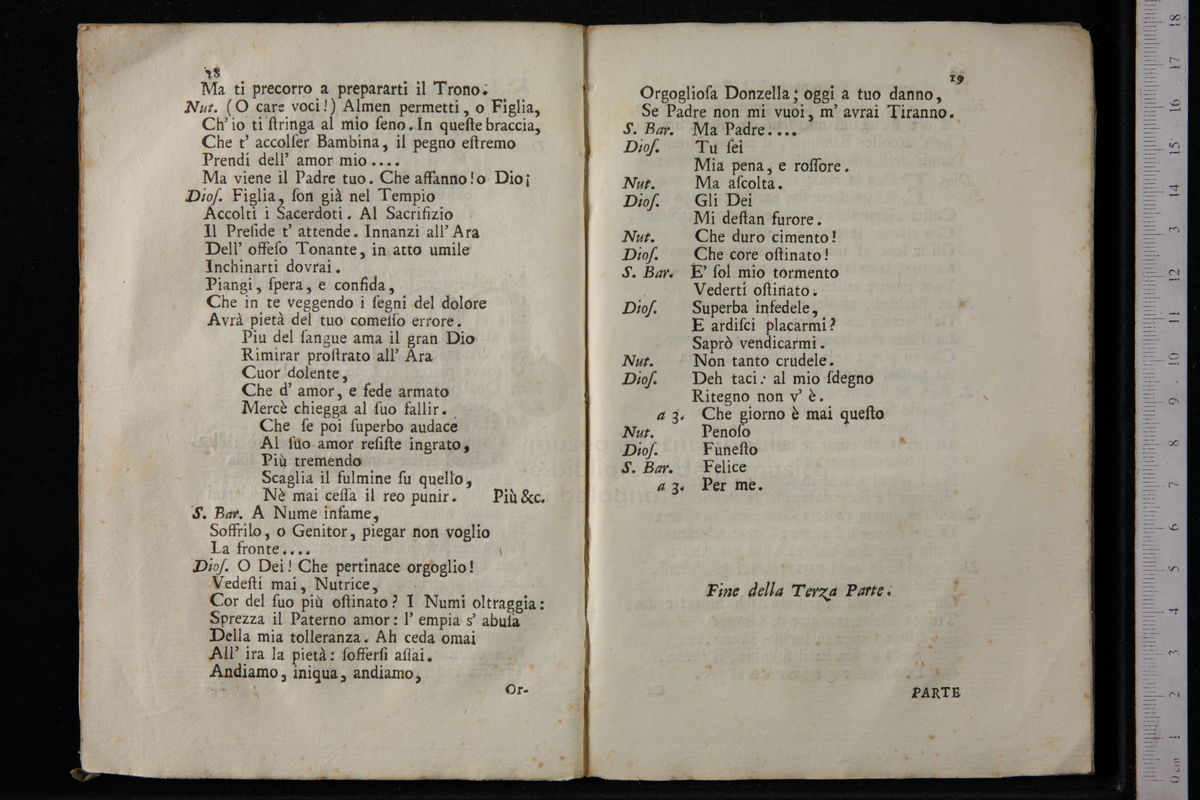 18
Ma ti precorro a prepararti il Trono.
Nut. (O care voci!) Almen permetti, o Figlia,
Ch'io ti ſtringa al mio ſeno. In queſte braccia,
Che t' accolſer Bambina, il pegno eſtremo
Prendi dell' amor mio....
Ma viene il Padre tuo. Che affanno! o Dio¡
Dioſ. Figlia, ſon già nel Tempio
Accolti i Sacerdoti. Al Sacrifizio
Il Preſide t' attende. Innanzi all' Ara
Dell' offeſo Tonante, in atto umile
Inchinarti dovrai.
Piangi, ſpera, e confida,
Che in te veggendo i ſegni del dolore
Avrà pietà del tuo comeſſo errore.
Piu del ſangue ama il gran Dio
Rimirar proſtrato all' Ara
Cuor dolente,
Che d' amor, e fede armato
Mercè chiegga al ſuo fallir.
Che ſe poi ſuperbo audace
Al ſuo amor reſiſte ingrato,
Più tremendo
Scaglia il fulmine ſu quello,
Nè mai ceſſa il reo punir. Più &c.
S. Bar. A Nume infame,
Soffrilo, o Genitor, piegar non voglio
La fronte....
Dioſ. O Dei! Che pertinace orgoglio!
Vedeſti mai, Nutrice,
Cor del ſuo più oſtinato? I Numi oltraggia:
Sprezza il Paterno amor: l' empia s' abuſa
Della mia tolleranza. Ah ceda omai
All' ira la pietà: ſofferſi aſſai.
Andiamo, iniqua, andiamo,
Or-
19
Orgoglioſa Donzella; oggi a tuo danno,
Se Padre non mi vuoi, m' avrai Tiranno.
S. Bar. Ma Padre....
Dioſ. Tu ſei
Mia pena, e roſſore.
Nut. Ma aſcolta.
Dioſ. Gli Dei
Mi deſtan furore.
Nut. Che duro cimento!
Dioſ. Che core oſtinato!
S. Bar. E' ſol mio tormento
Vederti oſtinato.
Dioſ. Superba infedele,
E ardiſci placarmi?
Saprò vendicarmi.
Nut. Non tanto crudele.
Dioſ. Deh taci: al mio ſdegno
Ritegno non v' è.
a 3. Che giorno è mai queſto
Nut. Penoſo
Dioſ. Funeſto
S. Bar. Felice
a 3. Per me.
Fine della Terza Parte.
PARTE